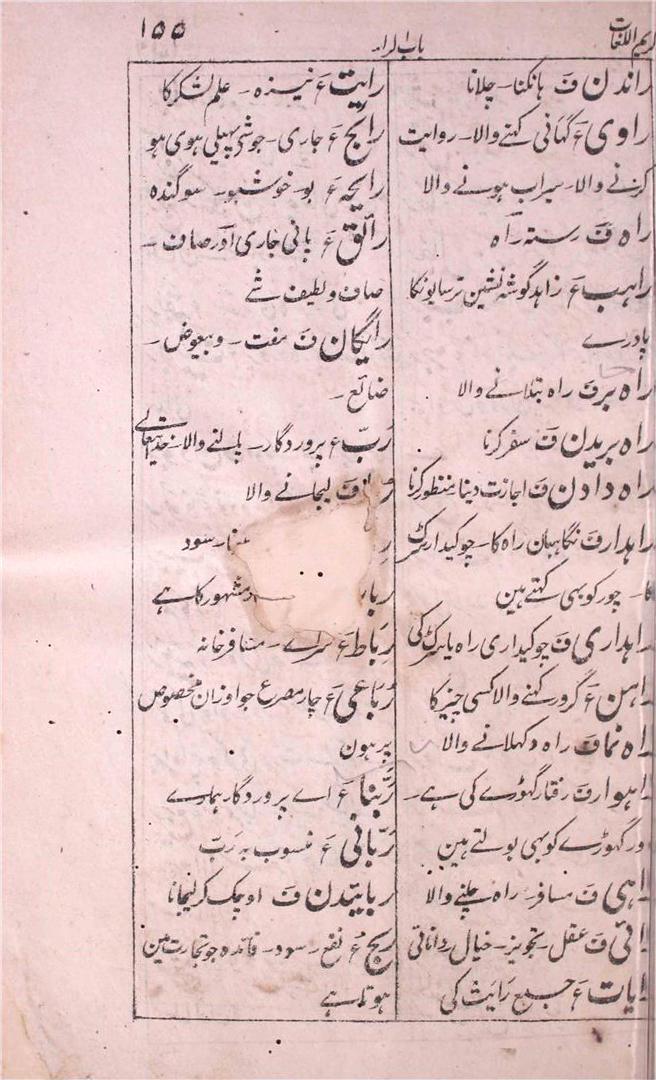 کریم اللغات
باب الراء
١٥٥
راندن ف ہانکنا۔ چلانا
راوی ع کہانی کہنے والا۔ روایت
کرنے والا۔ سیراب ہونے والا
راہ ف رستہ راہ
راہب ع زاہد گوشہ نشین ترسایونکا
پادرے
راہ بر ف راہ بتلانے والا
راہ بریدن ف سفر کرنا
راہ دادن ف اجازت دینا منظور کرنا
راہدار ف نگاہبان راہ کا۔ چوکیدار سڑک
کا۔ چور کو بہی کہتے ہین
راہداری ف چوکیداری راہ یا سڑک کی
راہن ع گرو رکہنے والا کسی چیز کا
راہ نما ف راہ دکہلانے والا
راہوار ف رفتار گہوڑے کی ہے۔
اور گہوڑے کو بہی بولتے ہین
راہی ف مسافر۔ راہ چلنے والا
رائی ف عقل۔ تجویز۔ خیال دانائی
رایات ع جمع رایت کی
رایت ع نیزہ۔ علم لشکر کا
رایج ع جاری۔ جو شی پہیلی ہوی ہو
رایحہ ع بو۔ خوشبو۔ سوگندہ
رائق ع پانی جاری اور صاف۔
صاف و لطیف شے
رایگان ف مفت۔ و بیعوض۔
ضائع۔
رَبّ ع پروردگار۔ پالنے والا۔ خدایتعالے
ف لیجانے والا
سود
ربا مشہور کا ہے
رباط ع سراے۔ مسافر خانہ
رُباعی ع چار مصرع جو اوزان مخصوص
پر ہون
رَبّنا ع اے پروردگار ہمارے
رَبّانی ع منسوب بہ رَبّ
ربائیدن ف اوچک کر لیجانا
ربح ع نفع۔ سود۔ فائدہ جو تجارت مین
ہوتا ہے